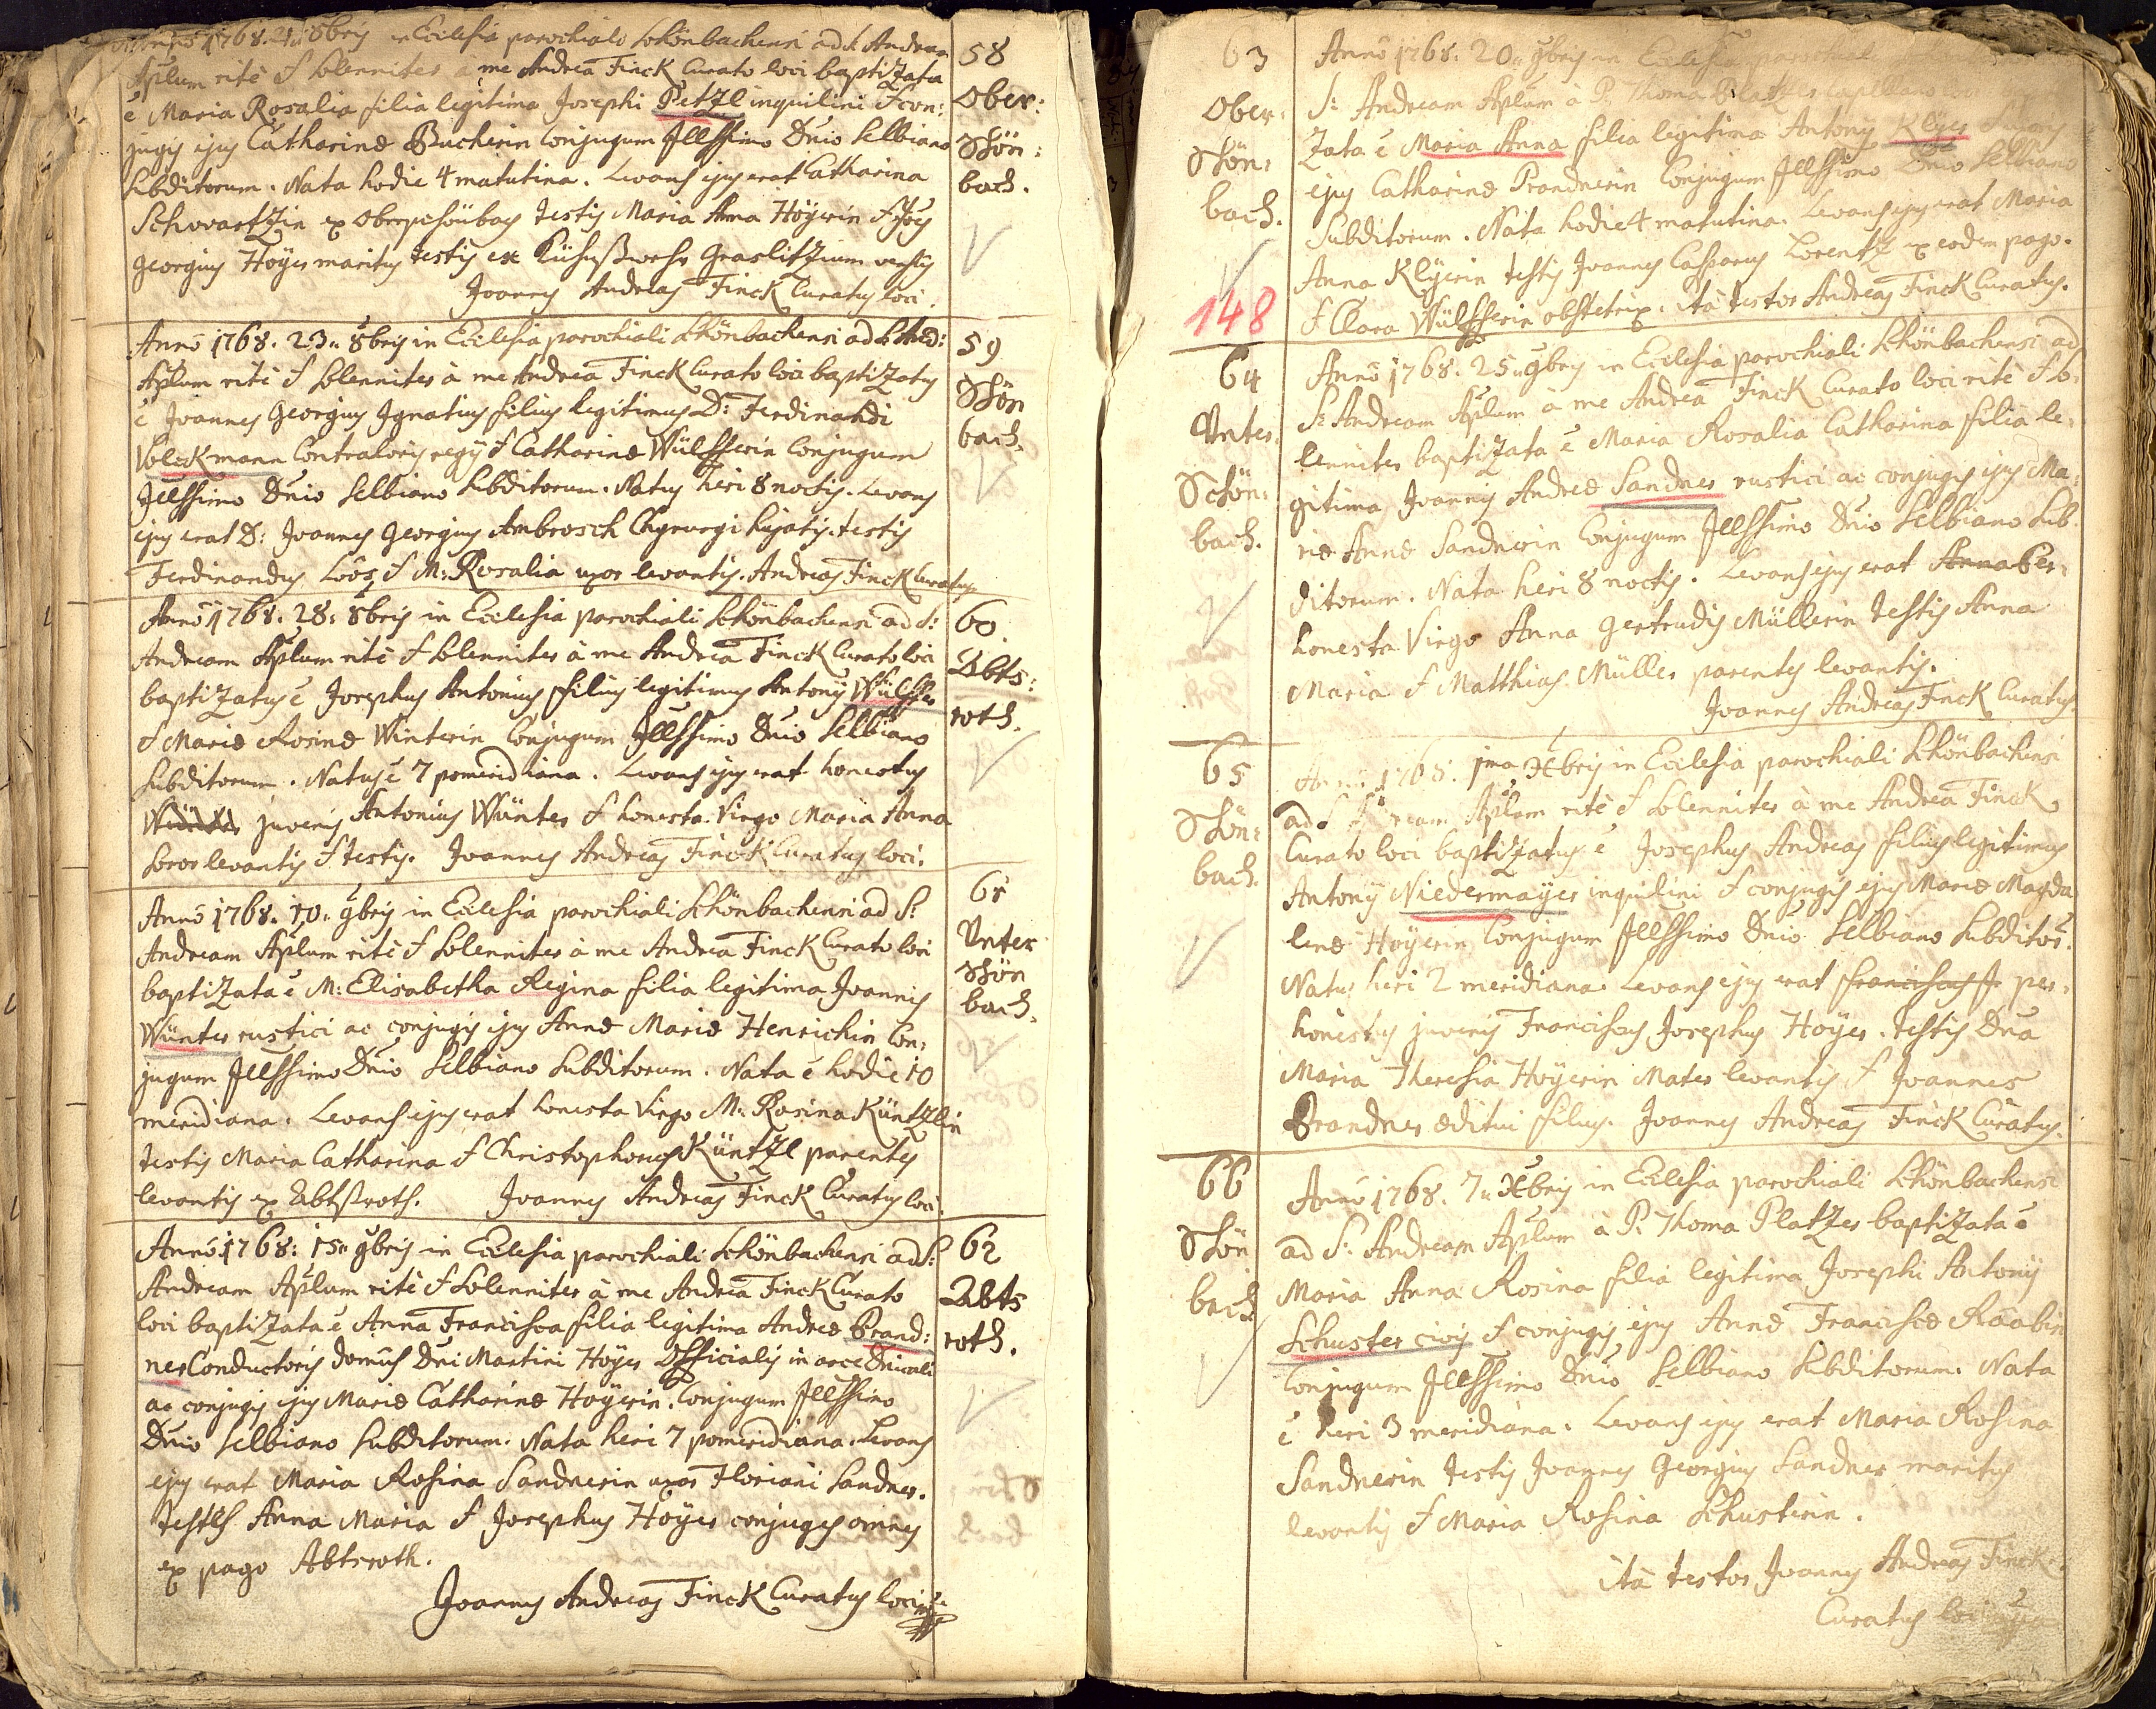 Anno 1768. 21. 8bris in Ecclesia parochiali Schönbachensi ad S. Andream
Aplum ritè et solenniter à me Andrea Finck Curato loci baptizata
ē Maria Rosalia filia legitima Josephi Petzl inquilini et con:
jugis ejus Catharinæ Bucherin Conjugum Jllssimo Dnio Selbiano
subditorum. Nata hodie 4 matutina. Levans ejus erat Catharina
Schwartzin ex Oberschönbach testis Maria Anna Höyerin et Joēs
Georgius Höyer maritus testis ex Graslitzium versus
Joannes Andreas Finck Curatus loci.
58
Ober:
Schön:
bach.
Anno 1768. 23. 8bris in Ecclesia parochiali Schönbachensi ad S. And:
Aplum ritè et solenniter à me Andrea Finck Curato loci baptizatus
ē Joannes Georgius Ignatius filius legitimus D: Ferdinandi
Volckmann Contraloris regii et Catharinæ Wülfferin Conjugum
Jllssimo Dnio Selbiano subditorum. Natus heri 8 noctis. Levans
ejus erat D: Joannes Georgius Ambrosch Chyrurgi hujatis. testis
Ferdinandus Loôs et M: Rosalia uxor levantis. Andreas Finck Curatus
59
Schön
bach.
Anno 1768. 28. 8bris in Ecclesia parochiali Schönbachensi ad S:
Andream Aplum ritè et solenniter à me Andrea Finck Curato loci
baptizatus ē Josephus Antonius filius legitimus Antonÿ Wülffer
et Mariæ Rosinæ Winterin Conjugum Jllssimo Dnio Selbiano
subditorum. Natus ē 7 pomeridiana. Levans ejus erat honestus
juvenis Antonius Wünter et honesta Virgo Maria Anna
soror levantis et testis. Joannes Andreas Finck Curatus loci.
60
Abts:
roth.
Anno 1768. 10. 9bris in Ecclesia parochiali Schönbachensi ad S:
Andream Aplum ritè et solenniter à me Andrea Finck Curato loci
baptizata ē M: Elisabetha Regina filia legitima Joannis
Wünter rustici ac conjugis ejus Annæ Mariæ Henrichin Con:
jugum Jllssimo Dnio Selbiano subditorum. Nata ē hodie 10
meridiana. Levans ejus erat honesta Virgo M: Rosina Küntzlin
testis Maria Catharina et Christophorus Küntzl parentes
levantis ex Abtßroth. Joannes Andreas Finck Curatus loci.
61
Unter
Schön
bach.
Anno 1768: 15. 9bris in Ecclesia parochiali Schönbachensi ad S:
Andream Aplum ritè et solenniter à me Andrea Finck Curato
loci baptizata ē Anna Francisca filia legitima Andreæ Brand:
ner Conductoris domûs Dni Martini Höyer Officialis in arce Dnicali
ac conjugis ejus Mariæ Catharinæ Höyerin. Conjugum Jllssimo
Dnio Selbiano subditorum. Nata heri 7 pomeridiana. Levans
ejus erat Maria Rosina Sandnerin uxor Floriani Sandner.
testes Anna Maria et Josephus Höyer conjuges omnes
ex pago Abtsroth.
Joannes Andreas Finck Curatus loci
62
Abts
roth.
63
Ober:
Schön:
bach.
148
Anno 1768. 20. 9bris in Ecclesia parochial
S: Andream Aplum à P. Thoma Platzer Capellano
zata ē Maria Anna filia legitima Antonÿ Klÿer
ejus Catharinæ Brandnerin Conjugum Jllssimo Dnio Selbiano
subditorum. Nata hodie 4 matutina. Levans ejus erat Maria
Anna Klÿerin testis Joannes Casparus Lorentz ex eodem pago.
et Clara Wülfferin obstetrix. ità testor Andreas Finck Curatus.
64
Unter:
Schön:
bach.
Anno 1768. 25. 9bris in Ecclesia parochiali Schönbachensi ad
S: Andream Aplum à me Andrea Finck Curato loci ritè et so:
lenniter baptizata ē Maria Rosalia Catharina filia le:
gitima Joannis Andreæ Sandner rustici ac conjugis ejus Ma:
riæ Annæ Sandnerin Conjugum Jllssimo Dnio Selbiano sub:
ditorum. Nata heri 8 noctis. Levans ejus erat Anna Per:
honesta Virgo Anna Gertrudis Müllerin testis Anna
Maria et Matthias Müller parentes levantis.
Joannes Andreas Finck Curatus
65
Schön:
bach.
Anno 1768. 1ma Xbris in Ecclesia parochiali Schönbachensi
ad S. Andream Aplum ritè et solenniter à me Andrea Finck
Curato loci baptizatus ē Josephus Andreas filius legitimus
Antonÿ Niedermaÿer inquilini et conjugis ejus Mariæ Magda
lenæ Höyerin Conjugum Jllssimo Dnio Selbiano subditor.
Natus heri 2 meridiana. Levans ejus erat Franciscus Jo per:
honestus juvenis Franciscus Josephus Höyer. testis Dna
Maria Theresia Höyerin Mater levantis et Joannes
Brandner æditui filius. Joannes Andreas Finck Curatus.
66
Schön
bach
Anno 1768. 7. Xbris in Ecclesia parochiali Schönbachensi
ad S: Andream Aplum à P. Thoma Platzer baptizata ē
Maria Anna Rosina filia legitima Josephi Antonÿ
Schuster civis et conjugis ejus Annæ Franciscæ Raabin
Conjugum Jllssimo Dnio Selbiano subditorum. Nata
ē heri 3 meridiana. Levans ejus erat Maria Rosina
Sandnerin testis Joannes Georgius Sandner maritus
levantis et Maria Rosina Schusterin.
ità testor Joannes Andreas Finck
Curatus loci